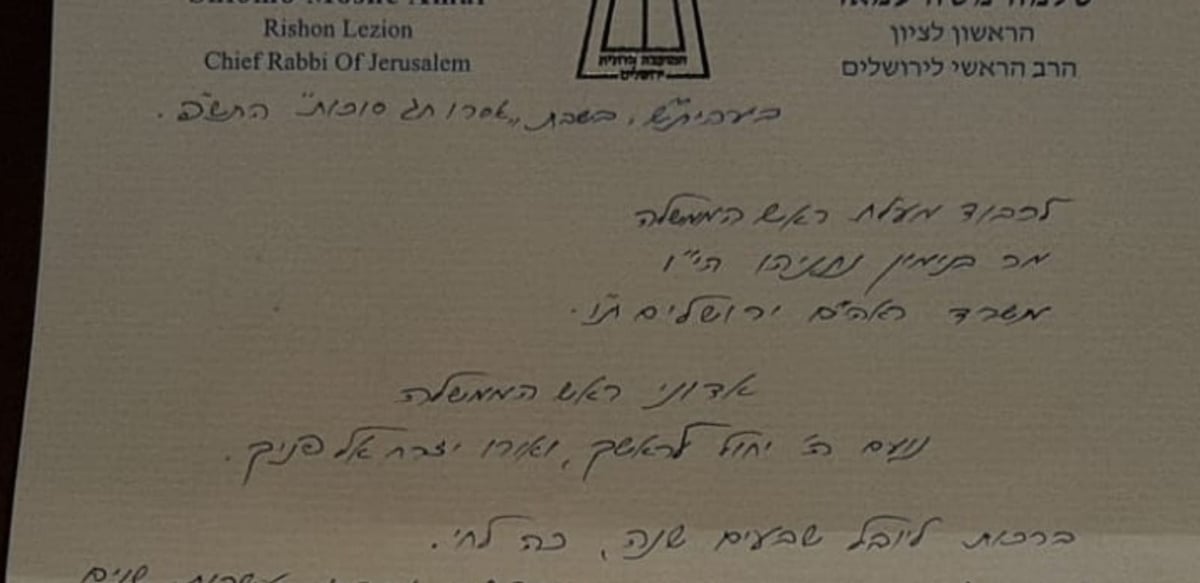 Shlomo Moshe Amar
Rishon Lezion
Chief Rabbi Of Jerusalem
ירושלים
שלמה משה עמאר
הראשון לציון
הרב הראשי לירושלים
בעהית״ש, בשבת „אסרו חג סוכות״ התש״פ.
לכבוד מעלת ראש הממשלה
מר בנימין נתניהו הי״ו
משרד ראה״מ ירושלים ת״ו.
אדוני ראש הממשלה
נועם ה׳ יחול לראשך, ואורו יזרח אל פניך.
ברכות ליובל שבעים שנה, כה לחי.
עשרות שנים